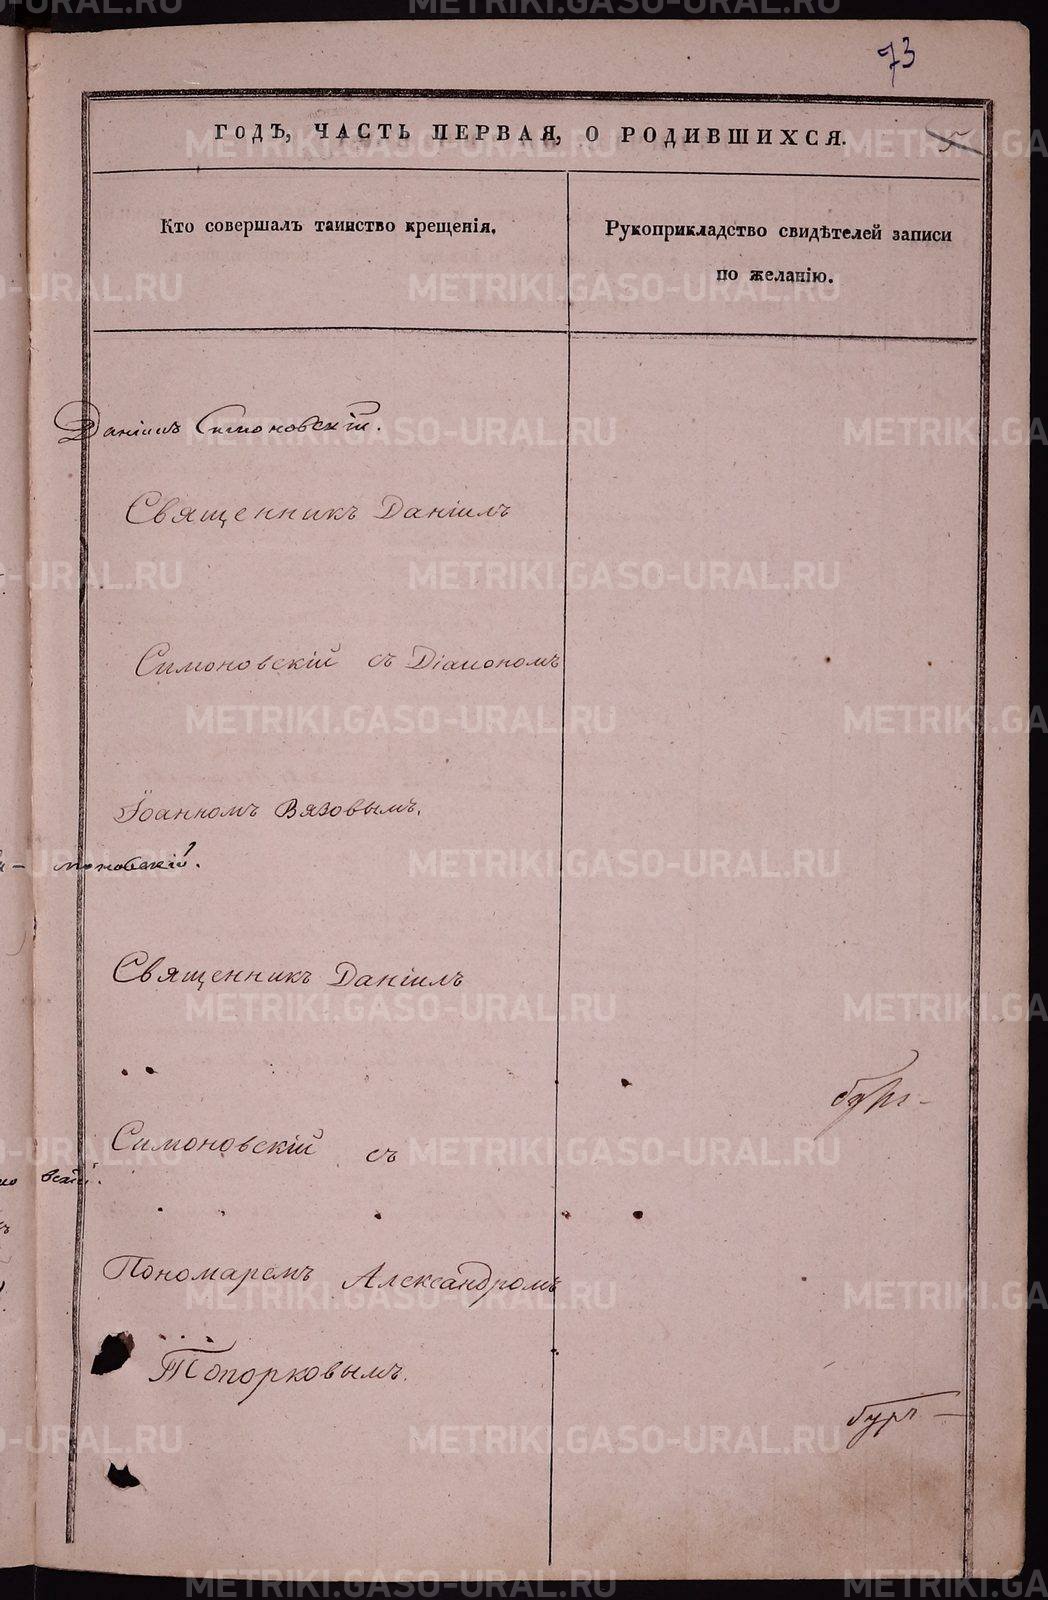 73
ГОДЪ, ЧАСТЬ ПЕРВАЯ, О РОДИВШИХСЯ.
Кто совершалъ таинство крещенія.
Рукоприкладство свидѣтелей записи
по желанію.
Даніилъ Симоновскій.
Священникъ Даніилъ
Симоновскій съ Діакономъ
Іоанномъ Вязовымъ.
моновскій.
Священникъ Даніилъ
Симоновскій съ
вскій.
Пономаремъ Александромъ
Топорковымъ.
METRIKI.GASO-URAL.RU